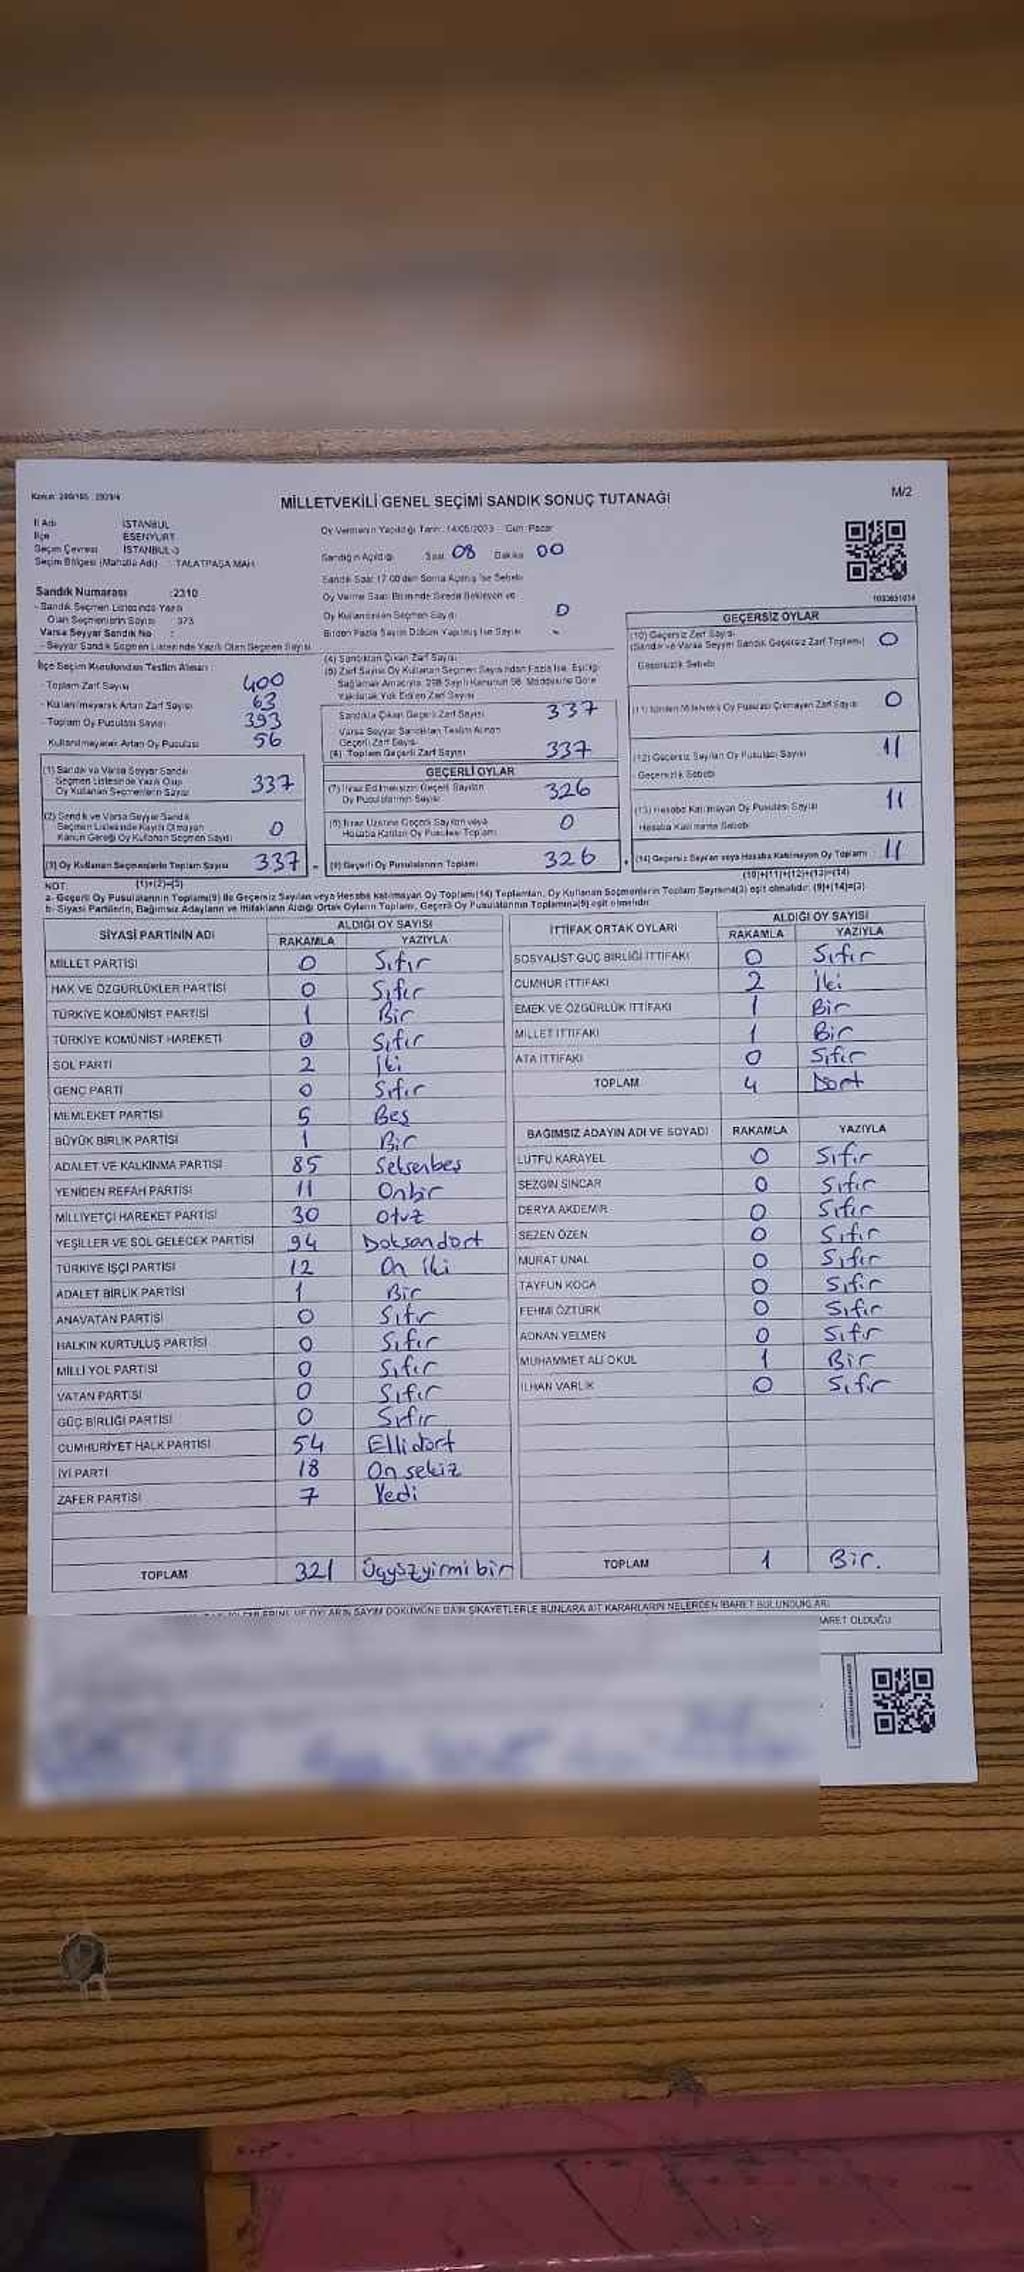 MİLLETVEKİLİ GENEL SEÇİMİ SANDIK SONUÇ TUTANAĞI
M/2
İl Adı İSTANBUL
İlçe ESENYURT
Seçim Çevresi İSTANBUL-3
Seçim Bölgesi (Mahalle Adı) : TALATPAŞA MAH.
Oy Vermenin Yapıldığı Tarih: 14/05/2023 Gün: Pazar
Sandığın Açıldığı Saat 08 Dakika 00
Sandık Saat 17:00'den Sonra Açılmış İse Sebebi
Oy Verme Saati Bitiminde Sırada Bekleyen ve
Oy Kullandırılan Seçmen Sayısı 0
Birden Fazla Sayım Döküm Yapılmış İse Sayısı -
Sandık Numarası :2310
- Sandık Seçmen Listesinde Yazılı
Olan Seçmenlerin Sayısı : 373
Varsa Seyyar Sandık No :
- Seyyar Sandık Seçmen Listesinde Yazılı Olan Seçmen Sayısı
İlçe Seçim Kurulundan Teslim Alınan :
- Toplam Zarf Sayısı 400
- Kullanılmayarak Artan Zarf Sayısı 63
- Toplam Oy Pusulası Sayısı 393
Kullanılmayarak Artan Oy Pusulası 56
(1) Sandık ve Varsa Seyyar Sandık
Seçmen Listesinde Yazılı Olup
Oy Kullanan Seçmenlerin Sayısı 337
(2) Sandık ve Varsa Seyyar Sandık
Seçmen Listesinde Kayıtlı Olmayan
Kanun Gereği Oy Kullanan Seçmen Sayısı 0
(3) Oy Kullanan Seçmenlerin Toplam Sayısı 337
(1)+(2)=(3)
(4) Sandıktan Çıkan Zarf Sayısı
(5) Zarf Sayısı Oy Kullanan Seçmen Sayısından Fazla İse, Eşitliği
Sağlamak Amacıyla, 298 Sayılı Kanunun 98. Maddesine Göre
Yakılarak Yok Edilen Zarf Sayısı
Sandıkta Çıkan Geçerli Zarf Sayısı 337
Varsa Seyyar Sandıktan Teslim Alınan
Geçerli Zarf Sayısı
(6) Toplam Geçerli Zarf Sayısı 337
GEÇERLİ OYLAR
(7) İtiraz Edilmeksizin Geçerli Sayılan
Oy Pusulalarının Sayısı 326
(8) İtiraz Üzerine Geçerli Sayılan veya
Hesaba Katılan Oy Pusulası Toplamı 0
(9) Geçerli Oy Pusulalarının Toplamı 326
GEÇERSİZ OYLAR
(10) Geçersiz Zarf Sayısı
(Sandık ve Varsa Seyyar Sandık Geçersiz Zarf Toplamı) 0
Geçersizlik Sebebi
0
(12) Geçersiz Sayılan Oy Pusulası Sayısı 11
Geçersizlik Sebebi
(13) Hesaba Katılmayan Oy Pusulası Sayısı 11
Hesaba Katılmama Sebebi
(14) Geçersiz Sayılan veya Hesaba Katılmayan Oy Toplamı 11
(10)+(11)+(12)+(13)=(14)
NOT:
a- Geçerli Oy Pusulalarının Toplamı(9) ile Geçersiz Sayılan veya Hesaba Katılmayan Oy Toplamı(14) Toplamları, Oy Kullanan Seçmenlerin Toplam Sayısına(3) eşit olmalıdır. (9)+(14)=(3)
b- Siyasi Partilerin, Bağımsız Adayların ve İttifakların Aldığı Ortak Oyların Toplamı, Geçerli Oy Pusulalarının Toplamına(9) eşit olmalıdır.
SİYASİ PARTİNİN ADI ALDIĞI OY SAYISI
RAKAMLA YAZIYLA
MİLLET PARTİSİ 0 Sıfır
HAK VE ÖZGÜRLÜKLER PARTİSİ 0 Sıfır
TÜRKİYE KOMÜNİST PARTİSİ 1 Bir
TÜRKİYE KOMÜNİST HAREKETİ 0 Sıfır
SOL PARTİ 2 İki
GENÇ PARTİ 0 Sıfır
MEMLEKET PARTİSİ 5 Beş
BÜYÜK BİRLİK PARTİSİ 1 Bir
ADALET VE KALKINMA PARTİSİ 85 Seksenbeş
YENİDEN REFAH PARTİSİ 11 Onbir
MİLLİYETÇİ HAREKET PARTİSİ 30 Otuz
YEŞİLLER VE SOL GELECEK PARTİSİ 94 Doksandört
TÜRKİYE İŞÇİ PARTİSİ 12 On iki
ADALET BİRLİK PARTİSİ 1 Bir
ANAVATAN PARTİSİ 0 Sıfır
HALKIN KURTULUŞ PARTİSİ 0 Sıfır
MİLLİ YOL PARTİSİ 0 Sıfır
VATAN PARTİSİ 0 Sıfır
GÜÇ BİRLİĞİ PARTİSİ 0 Sıfır
CUMHURİYET HALK PARTİSİ 54 Ellidört
İYİ PARTİ 18 On sekiz
ZAFER PARTİSİ 7 Yedi
TOPLAM 321 Üçyüzyirmibir
İTTİFAK ORTAK OYLARI ALDIĞI OY SAYISI
RAKAMLA YAZIYLA
SOSYALİST GÜÇ BİRLİĞİ İTTİFAKI 0 Sıfır
CUMHUR İTTİFAKI 2 İki
EMEK VE ÖZGÜRLÜK İTTİFAKI 1 Bir
MİLLET İTTİFAKI 1 Bir
ATA İTTİFAKI 0 Sıfır
TOPLAM 4 Dört
BAĞIMSIZ ADAYIN ADI VE SOYADI RAKAMLA YAZIYLA
LÜTFÜ KARAYEL 0 Sıfır
SEZGİN SİNCAR 0 Sıfır
DERYA AKDEMİR 0 Sıfır
SEZEN ÖZEN 0 Sıfır
MURAT ÜNAL 0 Sıfır
TAYFUN KOCA 0 Sıfır
FEHMİ ÖZTÜRK 0 Sıfır
ADNAN YELMEN 0 Sıfır
MUHAMMET ALİ OKUL 1 Bir
İLHAN VARLIK 0 Sıfır
TOPLAM 1 Bir.
OYLARIN SAYIM DÖKÜMÜNE DAİR ŞİKAYETLERLE BUNLARA AİT KARARLARIN NELERDEN İBARET BULUNDUKLARI